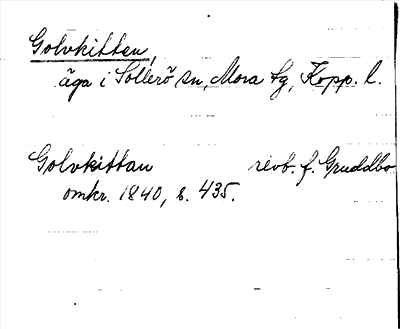 Golvkittan,
äga i Sollerö sn, Mora tg, Kopp. l.
Golvkittan revb. f. Gruddbo
omkr. 1840, s. 435.